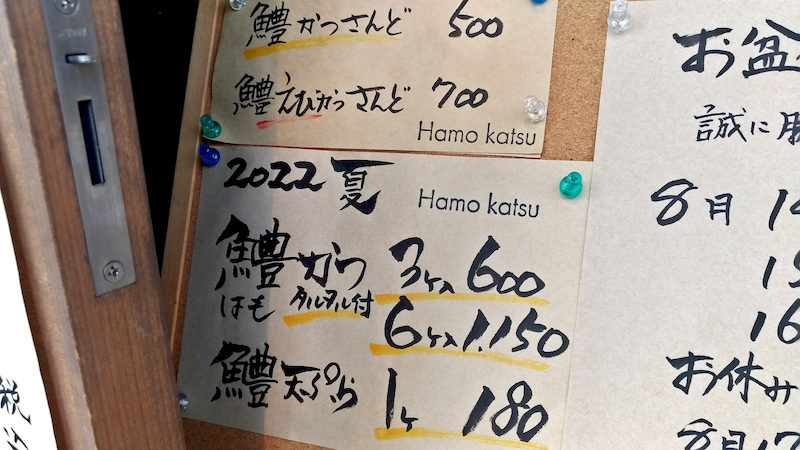 鱧かつさんど 500
鱧えびかつさんど 700
Hamo katsu
2022 夏 Hamo katsu
鱧かつ 3ヶ入 600
はも タルタル付
6ヶ入 1,150
鱧天ぷら 1ヶ 180
お盆
誠に勝
8月 14
15
16
お休み
8月17
税